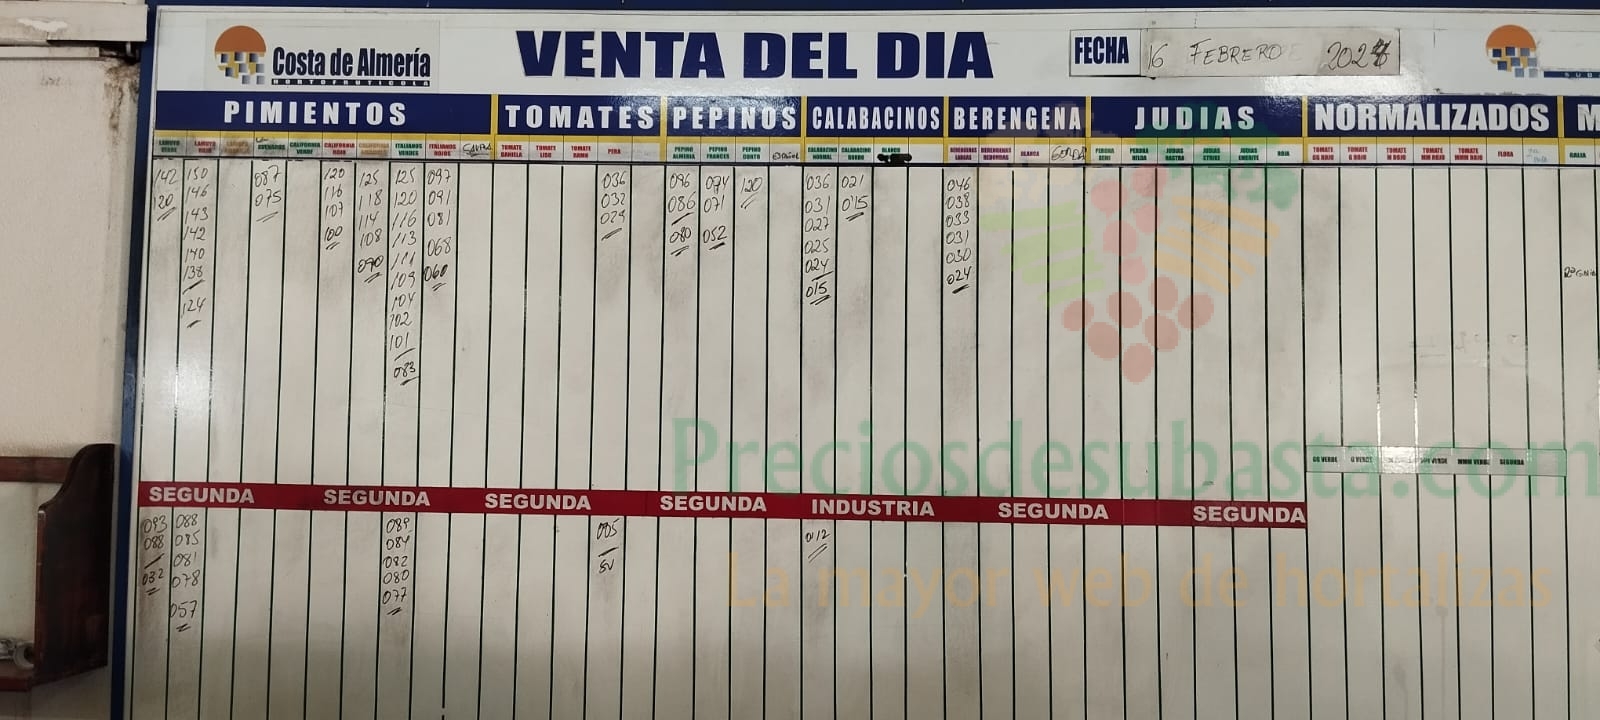 Costa de Almería
HORTOFRUTICOLA
VENTA DEL DIA
FECHA 16 FEBRERO 2024
PIMIENTOS TOMATES PEPINOS CALABACINOS BERENGENA JUDIAS NORMALIZADOS M
LAMUYO VERDE LAMUYO ROJO CALIFORNIA VERDE CALIFORNIA ROJO CALIFORNIA AMARILLO ITALIANOS VERDES ITALIANOS ROJOS TOMATE DANIELA TOMATE LISO TOMATE RAMO PERA PEPINO ALMERIA PEPINO FRANCES PEPINO CORTO ESPAÑOL CALABACINO NORMAL CALABACINO GORDO BLANCO BERENGENAS LARGAS BERENGENAS REDONDAS BLANCA GORDA PERONA SEMI PERONA HELDA JUDIAS RASTRA JUDIAS STRIKE JUDIAS EMERITE ROJA TOMATE GG ROJO TOMATE G ROJO TOMATE M ROJO TOMATE MM ROJO TOMATE MMM ROJO FLORA GALIA
142 150 087 120 125 125 097 036 096 074 120 036 021 046
120 146 075 116 118 120 091 032 086 071 031 015 038
143 107 114 116 081 029 080 052 027 033
142 100 108 113 068 025 031
140 090 111 060 024 030
138 109 015 024
124 104
102
101
083
GG VERDE G VERDE M VERDE MM VERDE MMM VERDE SEGUNDA
SEGUNDA SEGUNDA SEGUNDA SEGUNDA INDUSTRIA SEGUNDA SEGUNDA
093 088 089 005 012
088 085 084 SV
032 081 082
078 080
057 077
Preciosdesubasta.com
La mayor web de hortalizas